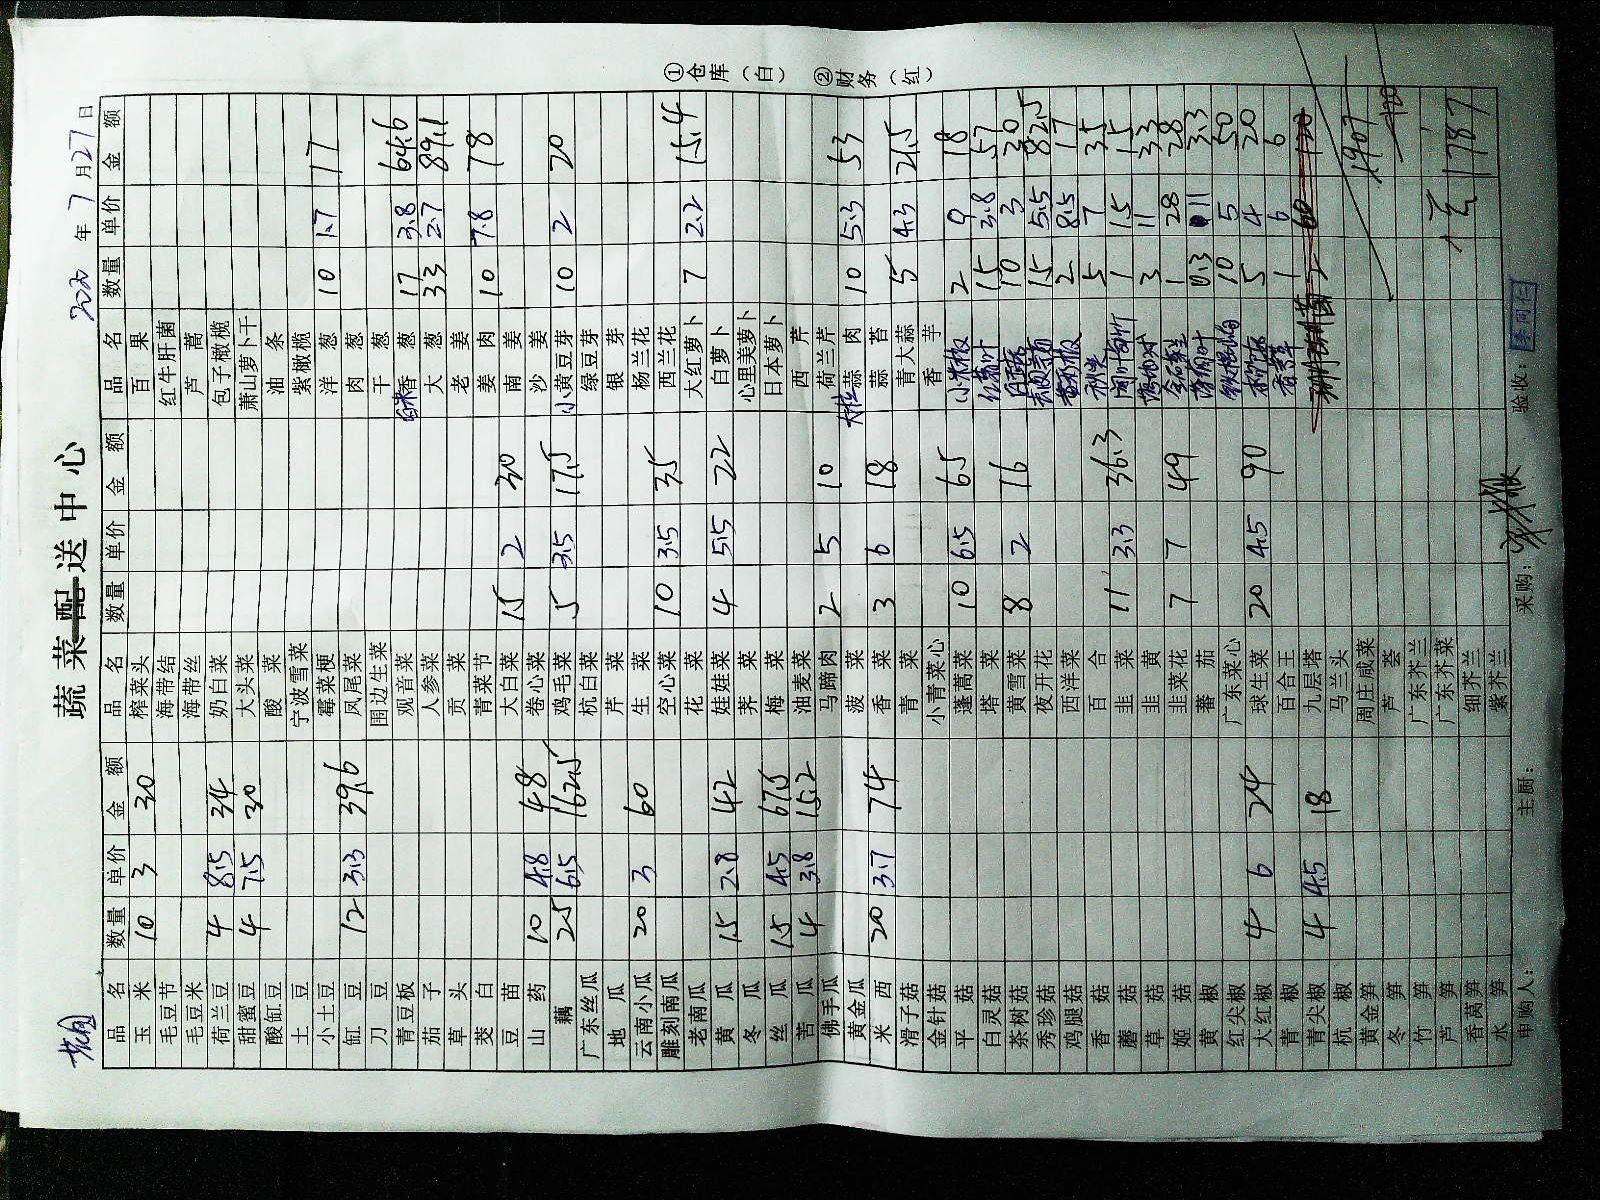 蔬菜配送中心
2020 年 7 月 27 日
品名 数量 单价 金额 品名 数量 单价 金额 品名 数量 单价 金额
玉米 10 3 30 榨菜头 百果
毛豆节 海带结 红牛肝菌
毛豆米 海带丝 芦蒿
荷兰豆 4 8.5 34 奶白菜 包子橄榄
甜蜜豆 4 7.5 30 大头菜 萧山萝卜干
酸缸豆 酸菜 油条
土豆 宁波雪菜 紫橄榄
小土豆 霉菜梗 洋葱 10 1.7 17
缸豆 12 3.3 39.6 凤尾菜 肉葱
刀豆 围边生菜 干葱
青豆板 观音菜 香葱 17 3.8 64.6
茄子 人参菜 大葱 33 2.7 89.1
草头 贡菜 老姜
茭白 青菜节 姜肉 10 7.8 78
豆苗 大白菜 15 2 30 南姜
山药 10 4.8 48 卷心菜 沙姜
藕 25 6.5 162.5 鸡毛菜 5 3.5 17.5 小黄豆芽 10 2 20
广东丝瓜 杭白菜 绿豆芽
地瓜 芹菜 银芽
云南小瓜 20 3 60 生菜 杨兰花
雕刻南瓜 空心菜 10 3.5 35 西兰花
老南瓜 花菜 大红萝卜 7 2.2 15.4
黄瓜 15 2.8 42 娃娃菜 4 5.5 22 白萝卜
冬瓜 荠菜 心里美萝卜
丝瓜 15 4.5 67.5 梅菜 日本萝卜
苦瓜 4 3.8 15.2 油麦菜 西芹
佛手瓜 马蹄肉 2 5 10 荷兰芹
黄金瓜 菠菜 蒜肉 10 5.3 53
米西 20 3.7 74 香菜 3 6 18 蒜苔
滑子菇 青菜 青大蒜 5 4.3 21.5
金针菇 小青菜心 香芋
平菇 蓬蒿菜 10 6.5 65 2 9 18
白灵菇 塔菜 15 3.8 57
茶树菇 黄雪菜 8 2 16 10 3 30
秀珍菇 夜开花 15 5.5 82.5
鸡腿菇 西洋菜 2 8.5 17
香菇 百合 5 7 35
蘑菇 韭菜 11 3.3 36.3 1 15 15
草菇 韭黄 3 11 33
姬菇 韭菜花 7 7 49 1 28 28
黄椒 蕃茄 0.3 11 3.3
红尖椒 广东菜心 10 5 50
大红椒 4 6 24 球生菜 20 4.5 90 5 4 20
青椒 百合王 香茅草 1 6 6
青尖椒 4 4.5 18 九层塔 2 60 120
杭椒 马兰头
黄金笋 周庄咸菜 1907
冬笋 芦荟 120
竹笋 广东芥兰
芦笋 广东芥菜
香莴笋 细芥兰 1787
水笋 紫芥兰
申购人： 主厨： 采购： 验收：
①仓库（白） ②财务（红）